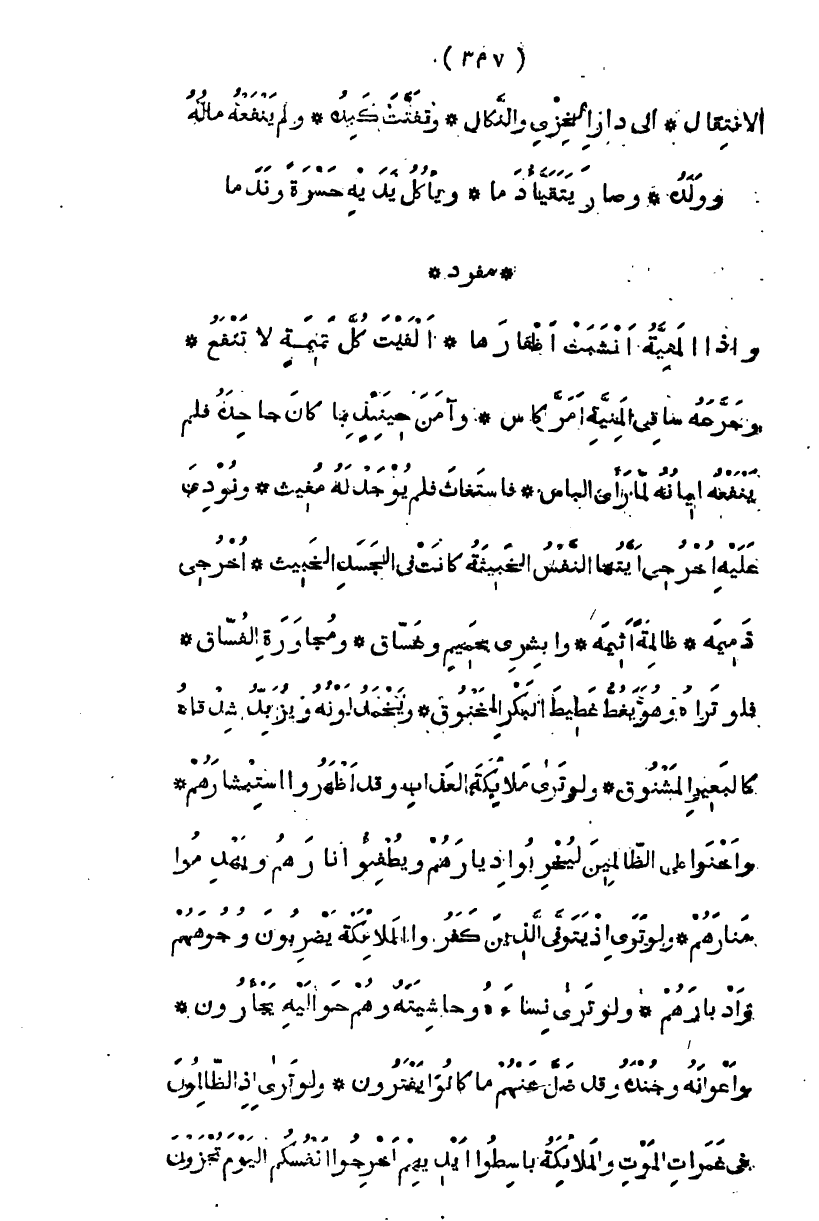 ( ٣٥٧ )
الانتِقال * الى دارِ الخِزْيِ والنَّكال * وتَفَتَّتَ كَبِدُهُ * ولم يَنْفَعْهُ مالُهُ
ووَلَدُهُ * وصارَ يَتَقَيَّأُ دَما * ويأكُلُ يَدَيْهِ حَسْرَةً ونَدَما
* مفرد *
واذا المَنِيَّةُ اَنْشَبَتْ اَظْفارَها * اَلْفَيْتَ كُلَّ تَمِيمَةٍ لا تَنْفَعُ *
وجَرَّعَهُ ساقِى المَنِيَّةِ اَمَرَّ كاس * وآمَنَ حِينَئِذٍ بِما كانَ جاحِدَهُ فلم
يَنْفَعْهُ اِيمانُهُ لمّا رَأَى الباس * فاستَغاثَ فلم يُوْجَدْ لَهُ مُغِيث * ونُوْدِىَ
عَلَيْهِ اُخْرُجِى اَيَّتُها النَّفْسُ الخَبِيثَةُ كانَتْ فى الجَسَدِ الخَبِيث * اُخْرُجِى
ذَمِيمَه * ظالِمَةً اَثِيمَه * وابشِرِى بِحَمِيمٍ وغَسّاق * ومُجاوَرَةِ الفُسّاق *
فلو تَراهُ وهُوَ يَغُطُّ غَطِيطَ البَكْرِ المَخْنُوق * ويَخْمُدُ لَوْنُهُ ويُزْبِدُ شِدْقاهُ
كالبَعِيرِ المَشْنُوق * ولو تَرىٰ مَلائِكَةَ العَذابِ وقد اَظْهَرُوا استِبْشارَهُمْ *
واَخْنَوا على الظّالِمِينَ لِيُخْرِبُوا دِيارَهُمْ ويُطْفِئُوا نارَهُم ويَهْدِمُوا
مَنارَهُمْ * ولو تَرَى اِذْ يَتَوَفَّى الَّذِينَ كَفَرُوا المَلائِكَةُ يَضْرِبُونَ وُجُوهَهُمْ
واَدْبارَهُمْ * ولو تَرىٰ نِساءَهُ وحاشِيَتَهُ وهُمْ حَوالَيْهِ يَجْأَرُون *
واَعْوانَهُ وجُنْدَهُ وقد ضَلَّ عَنْهُمْ ما كانُوا يَفْتَرُون * ولو تَرىٰ اِذِ الظّالِمُونَ
فى غَمَراتِ المَوْتِ والمَلائِكَةُ باسِطُوا اَيْدِيهِمْ اَخْرِجُوا اَنْفُسَكُم اليَوْمَ تُجْزَوْنَ